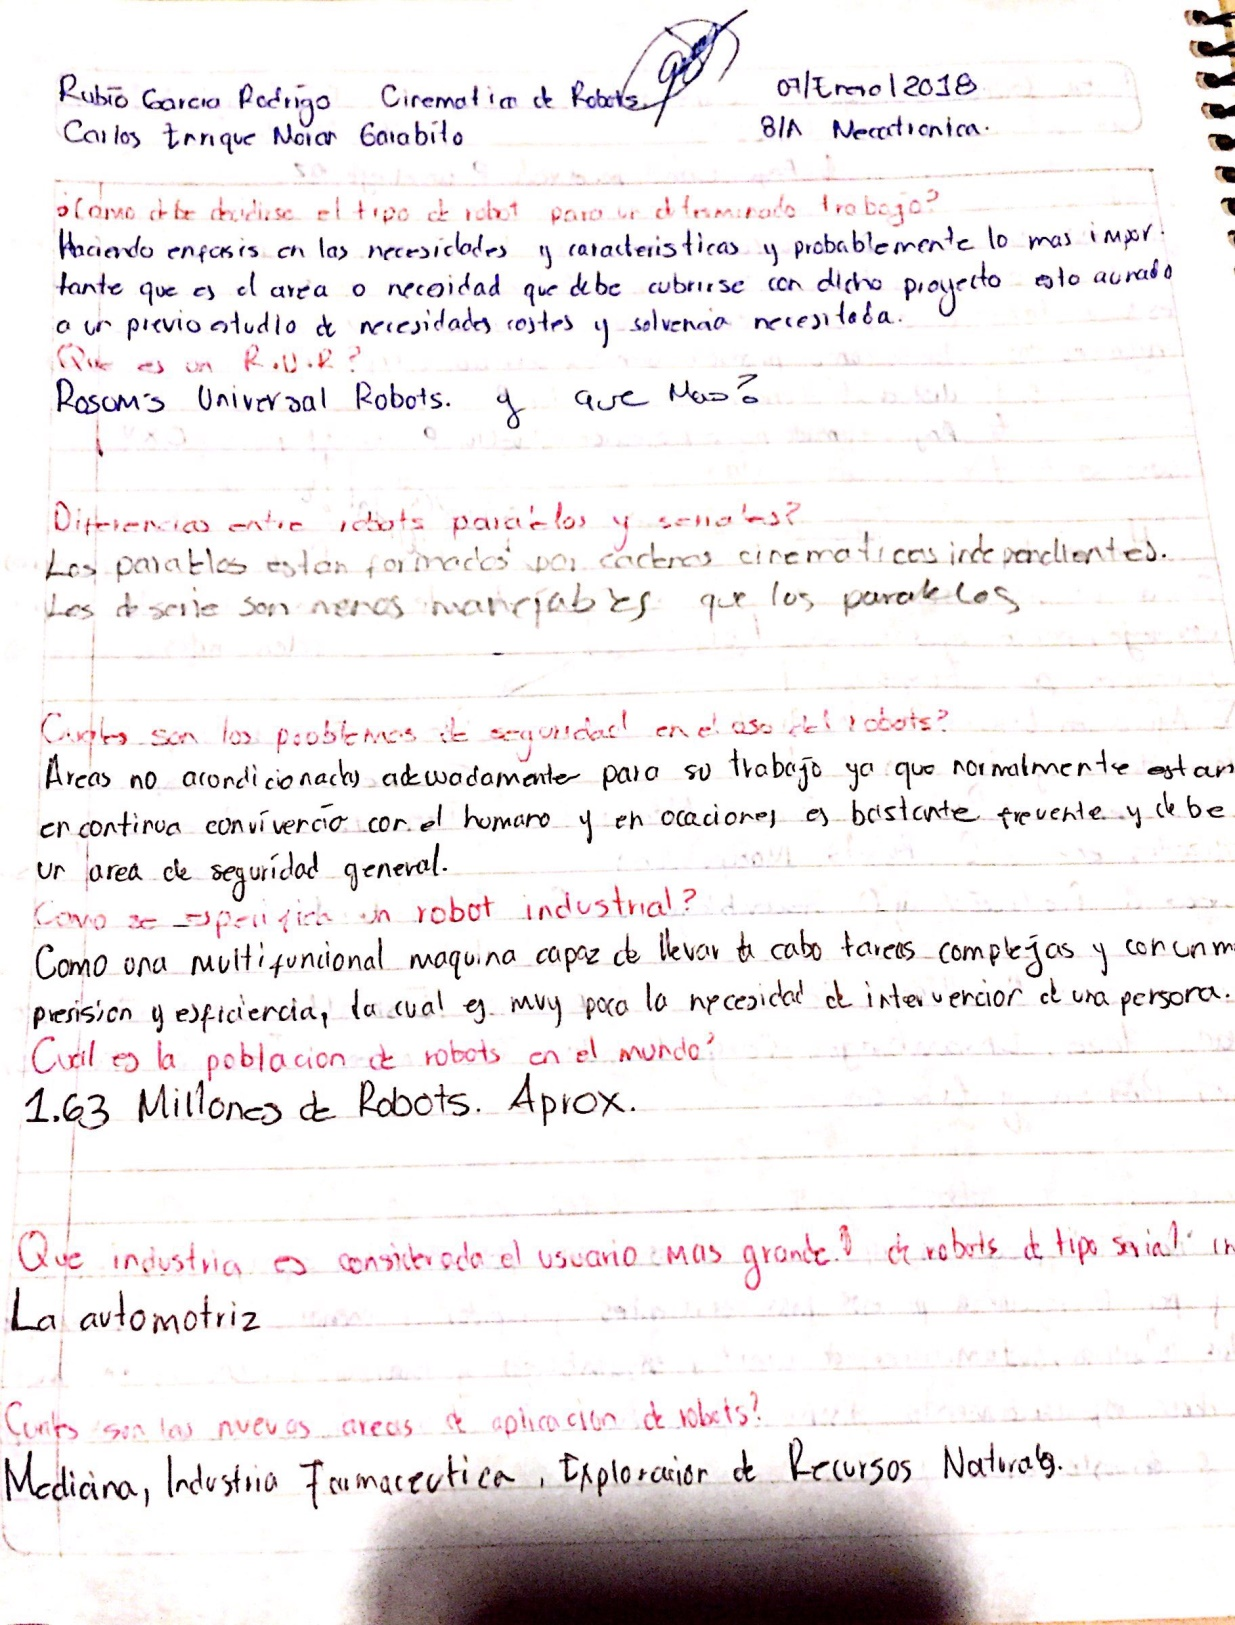 Rubio Garcia Rodrigo Cinematica de Robots 07/Enero/2018
Carlos Enrique Garabito 8/A Mecatronica.
¿Como debe decidirse el tipo de robot para un determinado trabajo?
Haciendo enfasis en las necesidades y caracteristicas y probablemente lo mas impor-
tante que es el area o necesidad que debe cubrirse con dicho proyecto esto aunado
a un previo estudio de necesidades costes y solvencia necesitada.
Que es un R.U.R?
Rosum's Universal Robots. y que Mas?
Diferencias entre robots paralelos y seriales?
Los paralelos estan formados por cadenas cinematicas independientes.
Los de serie son menos manejables que los paralelos
Cuales son los problemas de seguridad en el uso del robots?
Areas no acondicionadas adecuadamente para su trabajo ya que normalmente estan
en continua convivencia con el humano y en ocaciones es bastante frecuente y debe
un area de seguridad general.
Como se especifica un robot industrial?
Como una multifuncional maquina capaz de llevar a cabo tareas complejas y con
presision y esficiencia, la cual es muy poca la necesidad de intervencion de una persona.
Cual es la poblacion de robots en el mundo?
1.63 Millones de Robots. Aprox.
Que industria es considerada el usuario mas grande? de robots de tipo serial? in
La automotriz
Cuales son las nuevas areas de aplicacion de robots?
Medicina, Industria Farmaceutica, Exploracion de Recursos Naturales.